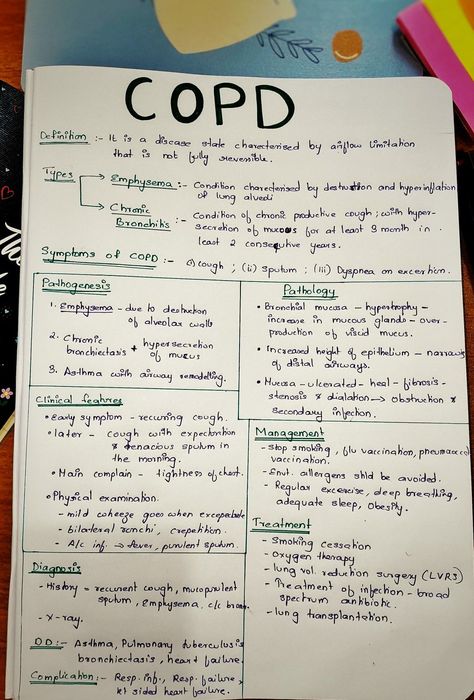 COPD
Definition :- It is a disease state charecterised by airflow limitation
that is not fully reversible.
Types
Emphysema :- Condition charecterised by destruction and hyperinflation
of lung alveoli
Chronic
Bronchitis :- Condition of chronic productive cough ; with hyper-
secretion of mucous for at least 3 month in
least 2 consequtive years.
Symptoms of COPD :- (i) cough ; (ii) sputum ; (iii) Dyspnea on excertion.
Pathogenesis
1. Emphysema - due to destruction
of alveolar walls
2. Chronic
bronchiectasis + hypersecretion
of mucus
3. Asthma with airway remodelling.
Pathology
• Bronchial mucosa - hypertrophy -
increase in mucous glands - over-
production of viscid mucus.
• Increased height of epithelium -
of distal airways.
• Mucosa - ulcerated - heal - fibrosis -
stenosis & dialation → obstruction &
secondary infection.
Clinical features
• Early symptom - recurring cough.
• later - cough with expectoration
& tenacious sputum in
the morning.
• Main complain - tightness of chest.
• Physical examination.
- mild wheeze
- bilateral ronchi, crepetition.
- A/c inf. → fever, purulent sputum.
Management
- Stop smoking, flu vaccination,
vaccination.
- Envt. allergens shld be avoided.
- Regular excercise, deep breathing,
adequate sleep, Obesity.
Treatment
- Smoking cessation
- Oxygen therapy
- lung vol. reduction surgery (LVRS)
- Treatment of infection - broad
spectrum antibiotic.
- lung transplantation.
Diagnosis
- History = recurrent cough, mucopurulent
sputum, Emphysema, c/c
- X-ray.
DD :- Asthma, Pulmonary tuberculosis
bronchiectasis, heart failure.
Complication :- Resp. inf., Resp. failure,
Rt sided heart failure.